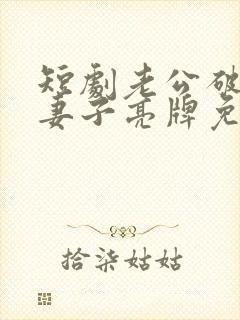 短劇老公破
妻子亮牌免
拾柒姑姑